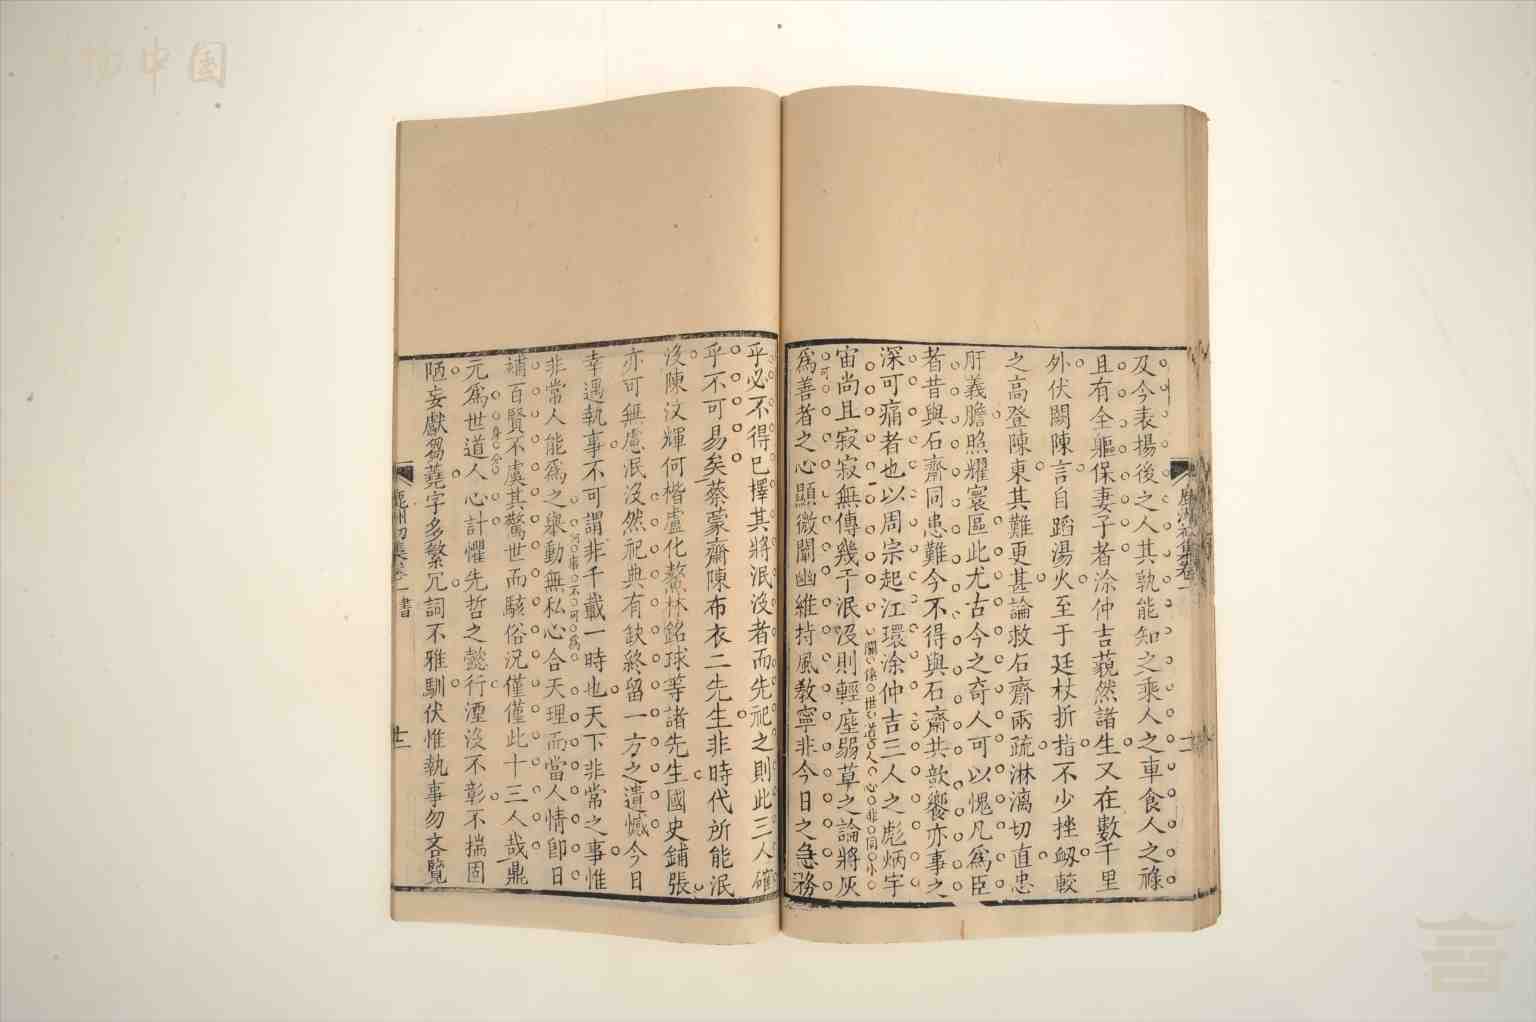 及今表揚後之人其孰能知之乘人之車食人之祿
且有全軀保妻子者涂仲吉藐然諸生又在數千里
外伏闕陳言自蹈湯火至于廷杖折指不少挫衂較
之高登陳東其難更甚論救石齋兩疏淋漓切直忠
肝義膽照耀寰區此尤古今之奇人可以愧凡爲臣
者昔與石齋同患難今不得與石齋共歆饗亦事之
深可痛者也以周宗起江環涂仲吉三人之彪炳宇
宙尚且寂寂無傳幾于泯沒則輕塵弱草之論將灰
關係世道人心非同小可
爲善者之心顯微闡幽維持風敎寧非今日之急務
乎必不得已擇其將泯沒者而先祀之則此三人確
乎不可易矣蔡蒙齋陳布衣二先生非時代所能泯
沒陳汶輝何楷盧化鰲林銘球等諸先生國史鋪張
亦可無慮泯沒然祀典有缺終留一方之遺憾今日
幸遇執事不可謂非千載一時也天下非常之事惟
何事不可爲
非常人能爲之舉動無私心合天理而當人情卽日
補百賢不虞其驚世而駭俗况僅僅此十三人哉鼎
元爲世道人心計懼先哲之懿行湮沒不彰不揣固
陋妄獻芻蕘字多繁冗詞不雅馴伏惟執事勿吝覽
鹿洲初集卷一 書 廿二
中国